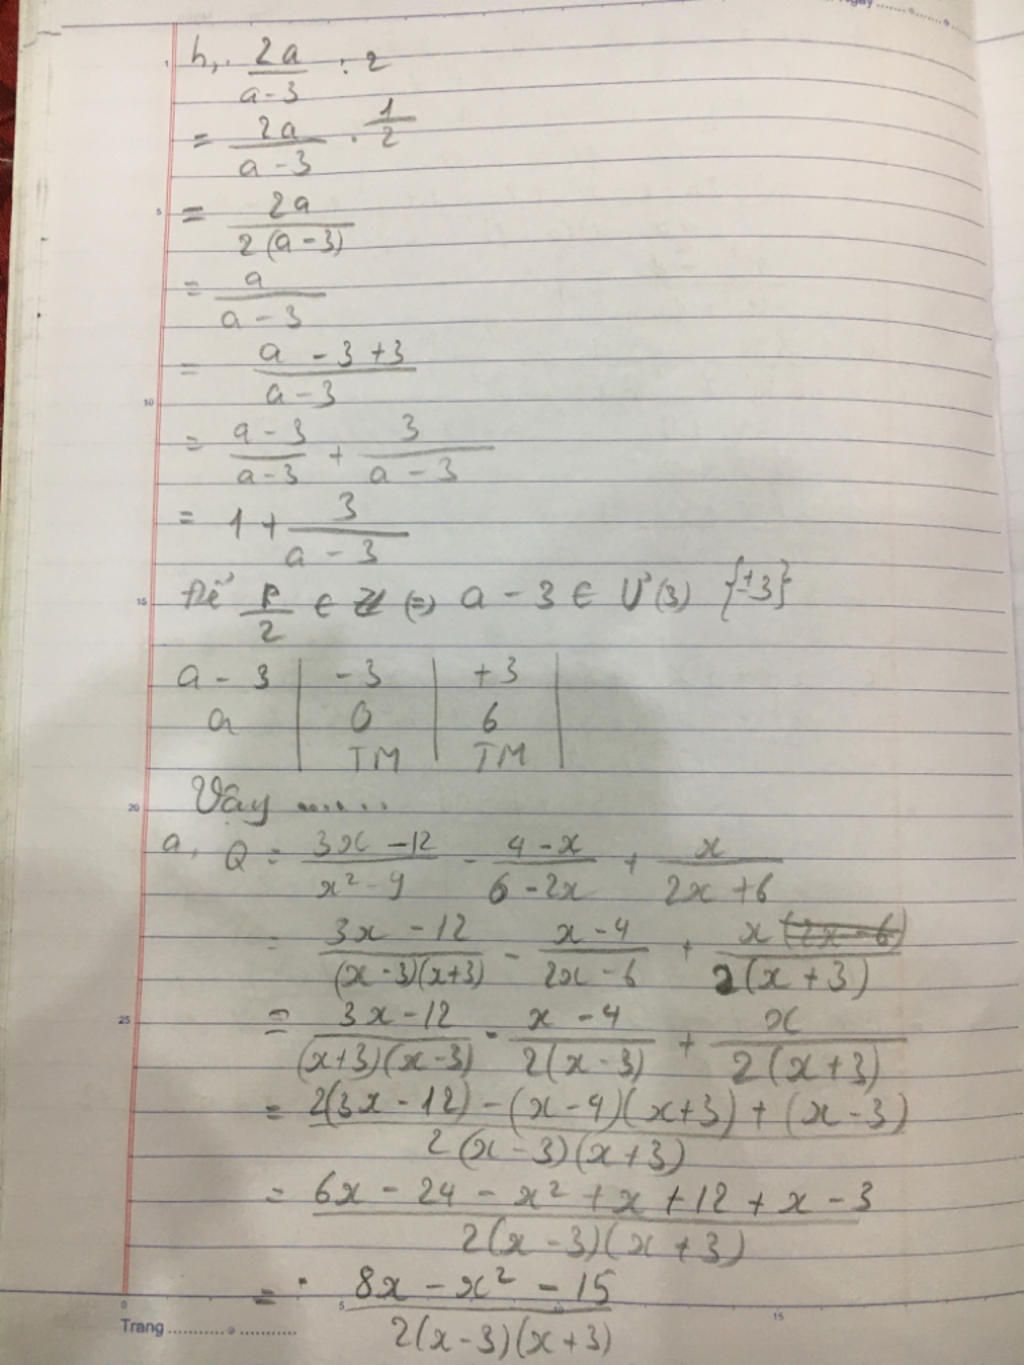 h, 2a/(a-3) : 2
= 2a/(a-3) . 1/2
= 2a/(2(a-3))
= a/(a-3)
= (a-3+3)/(a-3)
= (a-3)/(a-3) + 3/(a-3)
= 1 + 3/(a-3)
Để P/2 ∈ Z (=) a - 3 ∈ Ư(3) {±3}
a - 3 | -3 | +3
a | 0 | 6
TM | TM
Vậy ......
a, Q = (3x-12)/(x²-9) - (4-x)/(6-2x) + x/(2x+6)
= (3x-12)/((x-3)(x+3)) - (x-4)/(2x-6) + x/(2(x+3))
= (3x-12)/((x+3)(x-3)) - (x-4)/(2(x-3)) + x/(2(x+3))
= (2(3x-12)-(x-4)(x+3)+(x-3))/(2(x-3)(x+3))
= (6x-24-x²+x+12+x-3)/(2(x-3)(x+3))
= (8x-x²-15)/(2(x-3)(x+3))
Trang